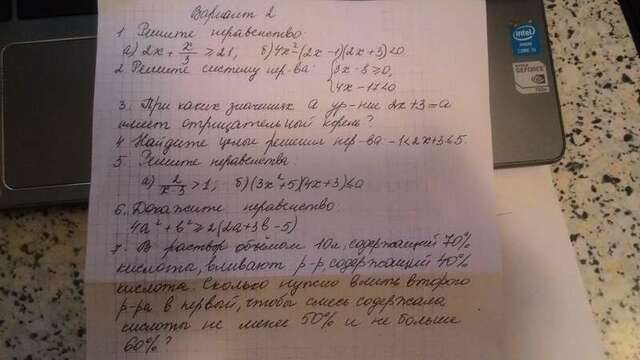 Вариант 2
1. Решите неравенство:
а) 2x + x/3 ≥ 21, б) 4x²-(2x-1)(2x+3)<0
2. Решите систему нер-ва: {3x-8≥0,
4x-17<0
3. При каких значениях а ур-ние 2x+3=a
имеет отрицательный корень?
4. Найдите целые решения нер-ва: -1<2x+3≤5.
5. Решите неравенства
а) 2/(x-3) >1; б) (3x²+5)(4x+3)≤0
6. Докажите неравенство:
4a²+b²≥2(2a+3b-5)
7. В раствор объёмом 10л, содержащий 70%
кислоты, вливают р-р, содержащий 40%
кислоты. Сколько нужно влить второго
р-ра в первый, чтобы смесь содержала
кислоты не менее 50% и не больше
60%?
intel
GEFORCE